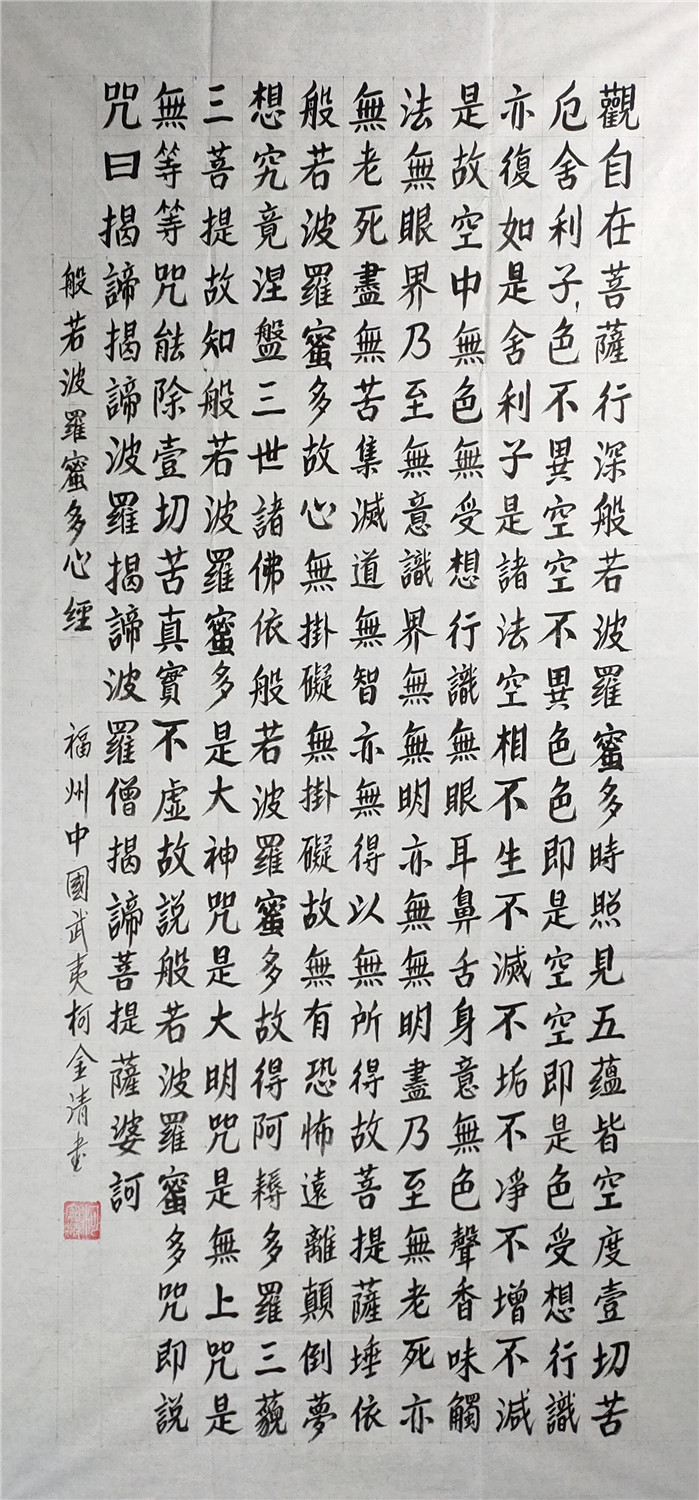 觀自在菩薩行深般若波羅蜜多時照見五蘊皆空度壹切苦
厄舍利子色不異空空不異色色即是空空即是色受想行識
亦復如是舍利子是諸法空相不生不滅不垢不凈不增不減
是故空中無色無受想行識無眼耳鼻舌身意無色聲香味觸
法無眼界乃至無意識界無無明亦無無明盡乃至無老死亦
無老死盡無苦集滅道無智亦無得以無所得故菩提薩埵依
般若波羅蜜多故心無掛礙無掛礙故無有恐怖遠離顛倒夢
想究竟涅盤三世諸佛依般若波羅蜜多故得阿耨多羅三藐
三菩提故知般若波羅蜜多是大神咒是大明咒是無上咒是
無等等咒能除壹切苦真實不虛故說般若波羅蜜多咒即說
咒曰揭諦揭諦波羅揭諦波羅僧揭諦菩提薩婆訶
般若波羅蜜多心經 福州中國武夷柯金清書